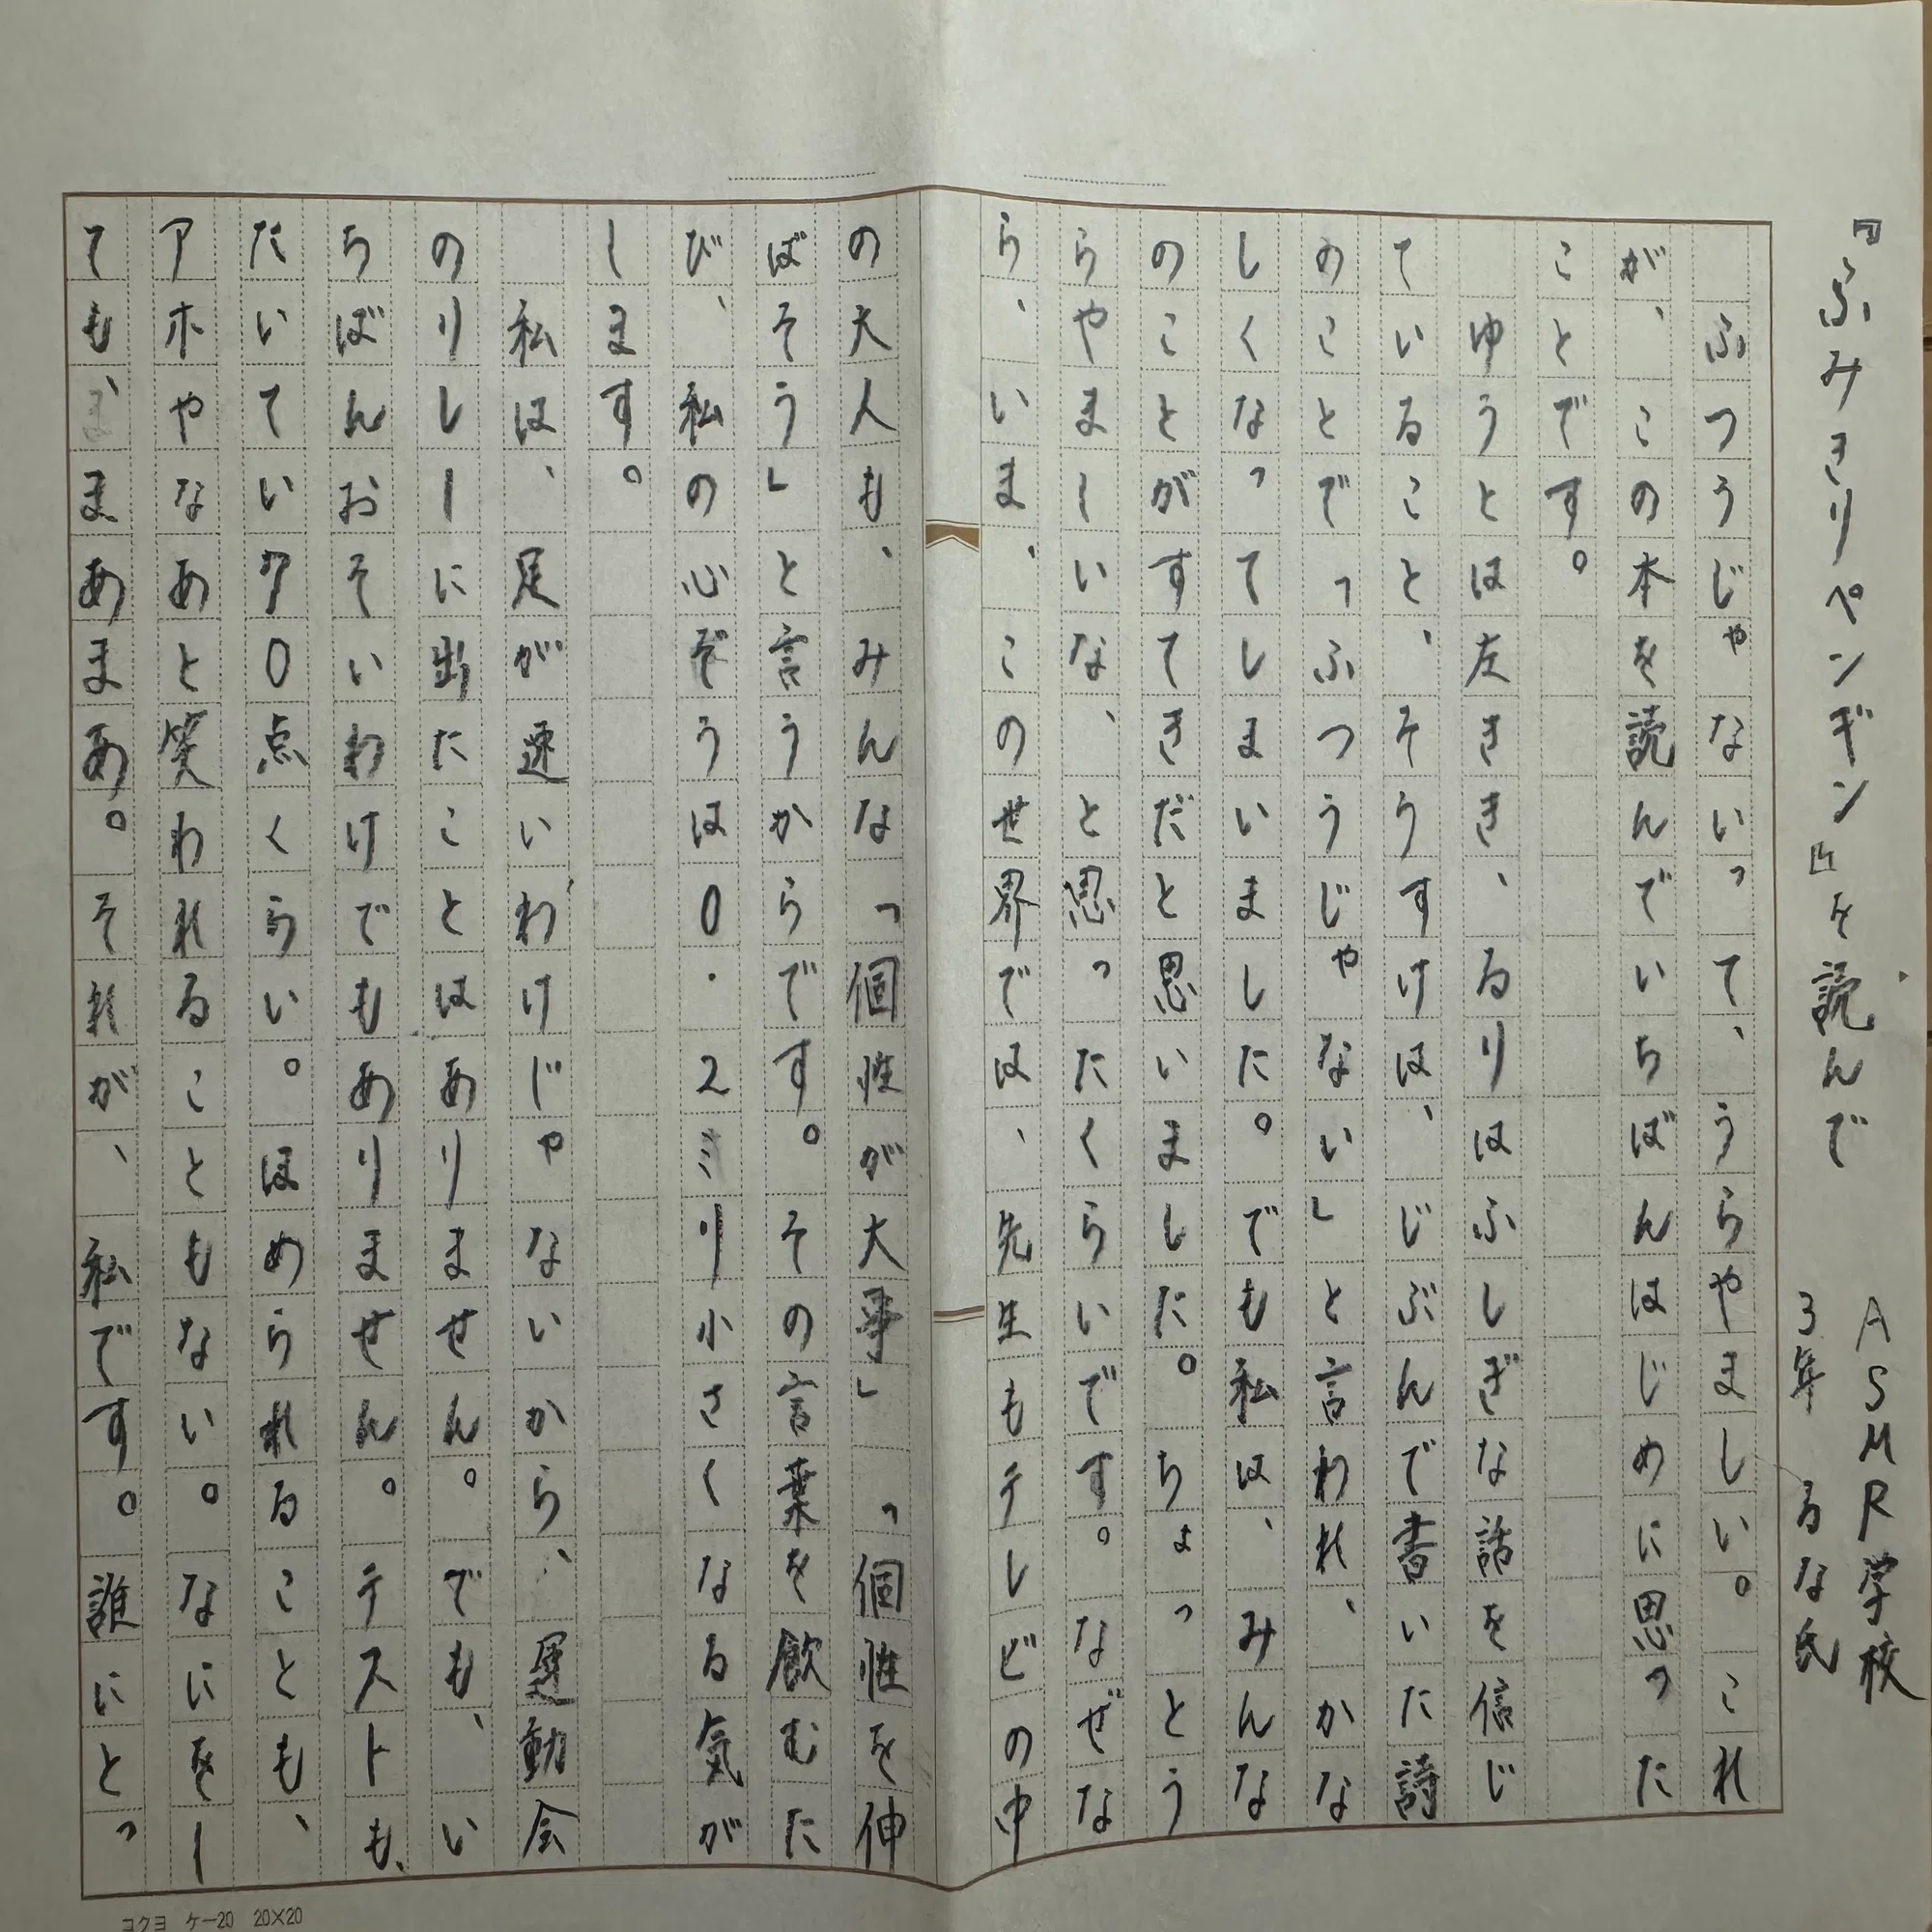 『ふみきりペンギン』を読んで
ASMR学校
3年 るな氏
ふつうじゃないって、うらやましい。これ
が、この本を読んでいちばんはじめに思った
ことです。
ゆうとは左きき、るりはふしぎな話を信じ
ていること、そうすけは、じぶんで書いた詩
のことで「ふつうじゃない」と言われ、かな
しくなってしまいました。でも私は、みんな
のことがすてきだと思いました。ちょっとう
らやましいな、と思ったくらいです。なぜな
ら、いま、この世界では、先生もテレビの中
の大人も、みんな「個性が大事」「個性を伸
ばそう」と言うからです。その言葉を飲むた
び、私の心ぞうは0.2ミリ小さくなる気が
します。
私は、足が速いわけじゃないから、運動会
のリレーに出たことはありません。でも、い
ちばんおそいわけでもありません。テストも、
だいてい70点くらい。ほめられることも、
アホやなあと笑われることもない。なにをし
ても、まあまあ。それが、私です。誰にとっ
ヨクヨ ケー20 20×20